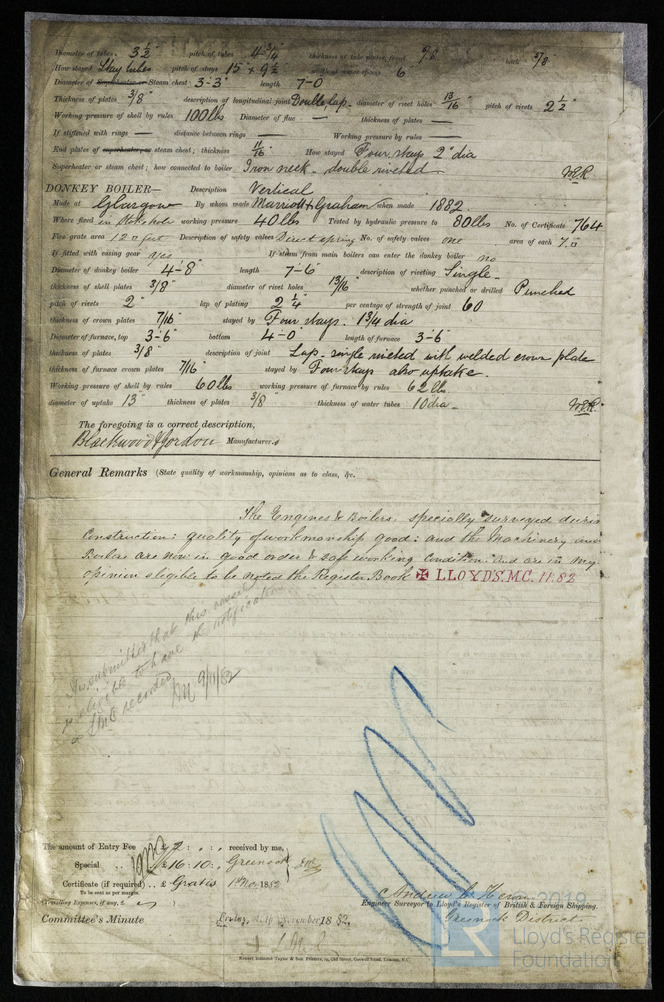 Diameter of tubes 3 1/2" pitch of tubes 4 3/4" thickness of tube plates, front 7/8" back 5/8"
How stayed Stay tubes pitch of stays 15" x 9 1/2" 6"
Diameter of Superheater or Steam chest 3-3" length 7-0
Thickness of plates 3/8" description of longitudinal joint Double, lap diameter of rivet holes 13/16" pitch of rivets 2 1/2"
Working pressure of shell by rules 100 lbs Diameter of flue — thickness of plates —
If stiffened with rings — distance between rings — Working pressure by rules —
End plates of superheater, or steam chest; thickness 11/16" How stayed Four stays 2" dia
Superheater or steam chest; how connected to boiler Iron neck. double riveted
DONKEY BOILER— Description Vertical
Made at Glasgow By whom made Marriott & Graham when made 1882
Where fixed in Stokehole working pressure 40 lbs Tested by hydraulic pressure to 80 lbs No. of Certificate 764
Fire grate area 12 □ feet Description of safety valves Direct spring No. of safety valves one area of each 7 □
If fitted with easing gear yes If steam from main boilers can enter the donkey boiler no
Diameter of donkey boiler 4-8" length 7-6" description of riveting Single
thickness of shell plates 3/8" diameter of rivet holes 13/16" whether punched or drilled Punched
pitch of rivets 2" lap of plating 2 1/4" per centage of strength of joint 60
thickness of crown plates 7/16" stayed by Four stays. 1 3/4 dia
Diameter of furnace, top 3-6" bottom 4-0" length of furnace 3-6"
thickness of plates 3/8" description of joint Lap. single riveted with welded crown plate
thickness of furnace crown plates 7/16" stayed by Four stays also uptake.
Working pressure of shell by rules 60 lbs working pressure of furnace by rules 62 lbs
diameter of uptake 13" thickness of plates 3/8" thickness of water tubes 10 dia
The foregoing is a correct description,
Blackwood & Gordon Manufacturers
General Remarks (State quality of workmanship, opinions as to class, &c.
The Engines & Boilers, specially surveyed during
Construction; quality of workmanship good; and the Machinery and
Boilers are now in good order & safe working condition. and are in my
opinion eligible to be noted the Register Book ✠ LLOYD'S. M.C. 11.82
It is submitted that this vessel
is eligible to have the notification
LMC recorded
9/11/82
The amount of Entry Fee .. £ 2 : . : . received by me,
Special .. £ 16 : 10 : . Greenock
Certificate (if required) .. £ Gratis 1st Nov. 1882
To be sent as per margin.
(Travelling Expenses, if any, £
Andrew C. Heron
Engineer Surveyor to Lloyd's Register of British & Foreign Shipping.
Greenock District
Committee's Minute November 18 82.
2019
LR Lloyd's Register
Foundation